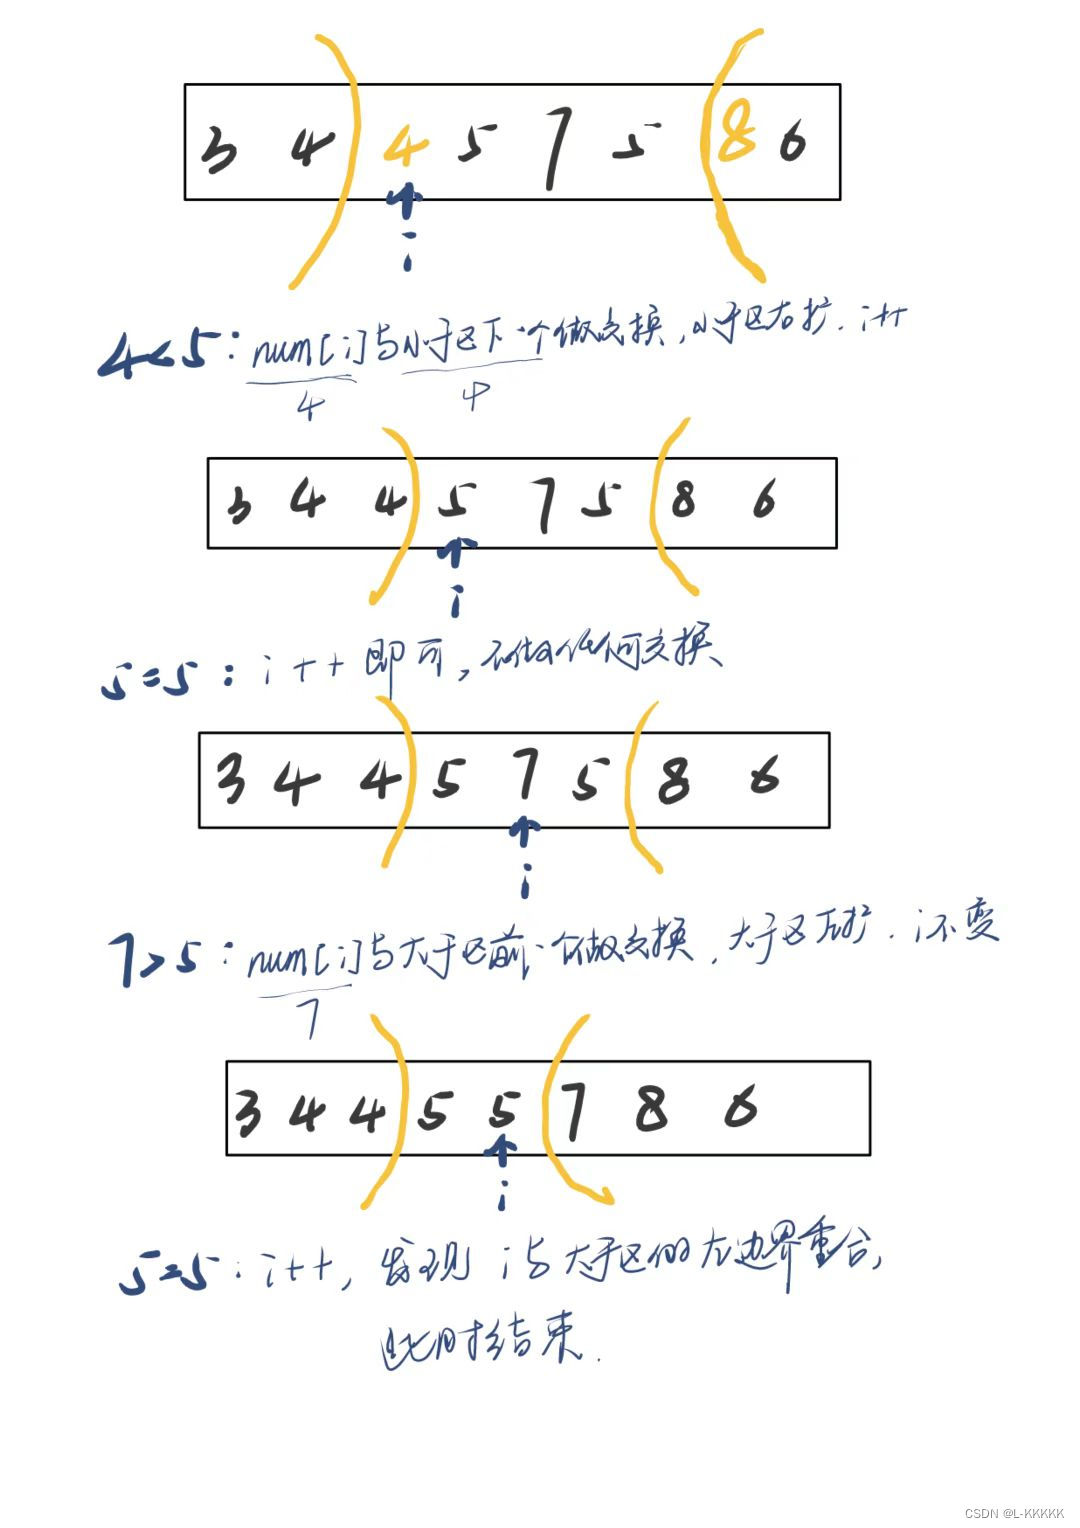 3 4 4 5 7 5 8 6
i
4<5：num[i]与小于区下一个做交换，小于区右扩．i++
4 4
3 4 4 5 7 5 8 6
i
5=5：i++即可，不做任何交换
3 4 4 5 7 5 8 6
i
7>5：num[i]与大于区前一个做交换．大于区左扩．i不变
7
3 4 4 5 5 7 8 6
i
5=5：i++，发现 i与大于区的左边界重合，
此时结束．
CSDN @L-KKKKK